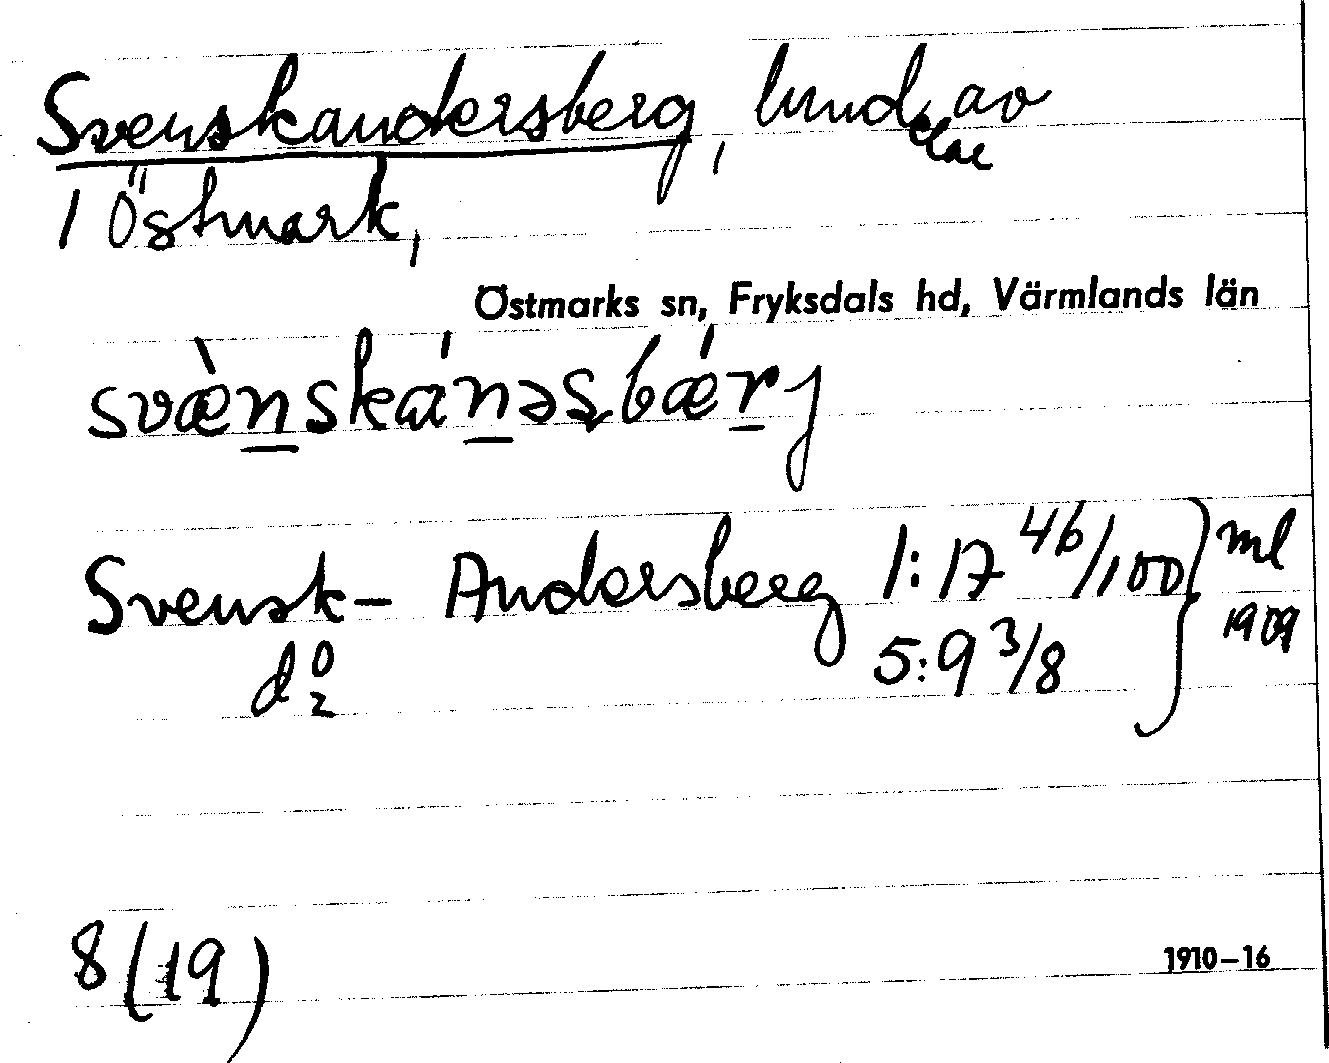 Svenskandersberg, lund, av
1 Östmark,
Östmarks sn, Fryksdals hd, Värmlands län
svæ̀nskánəsbǽrj
Svensk- Andersberg 1:17 46/100 } ml
d:o 2 5:9 3/8 1909
8 (19)
1910-16